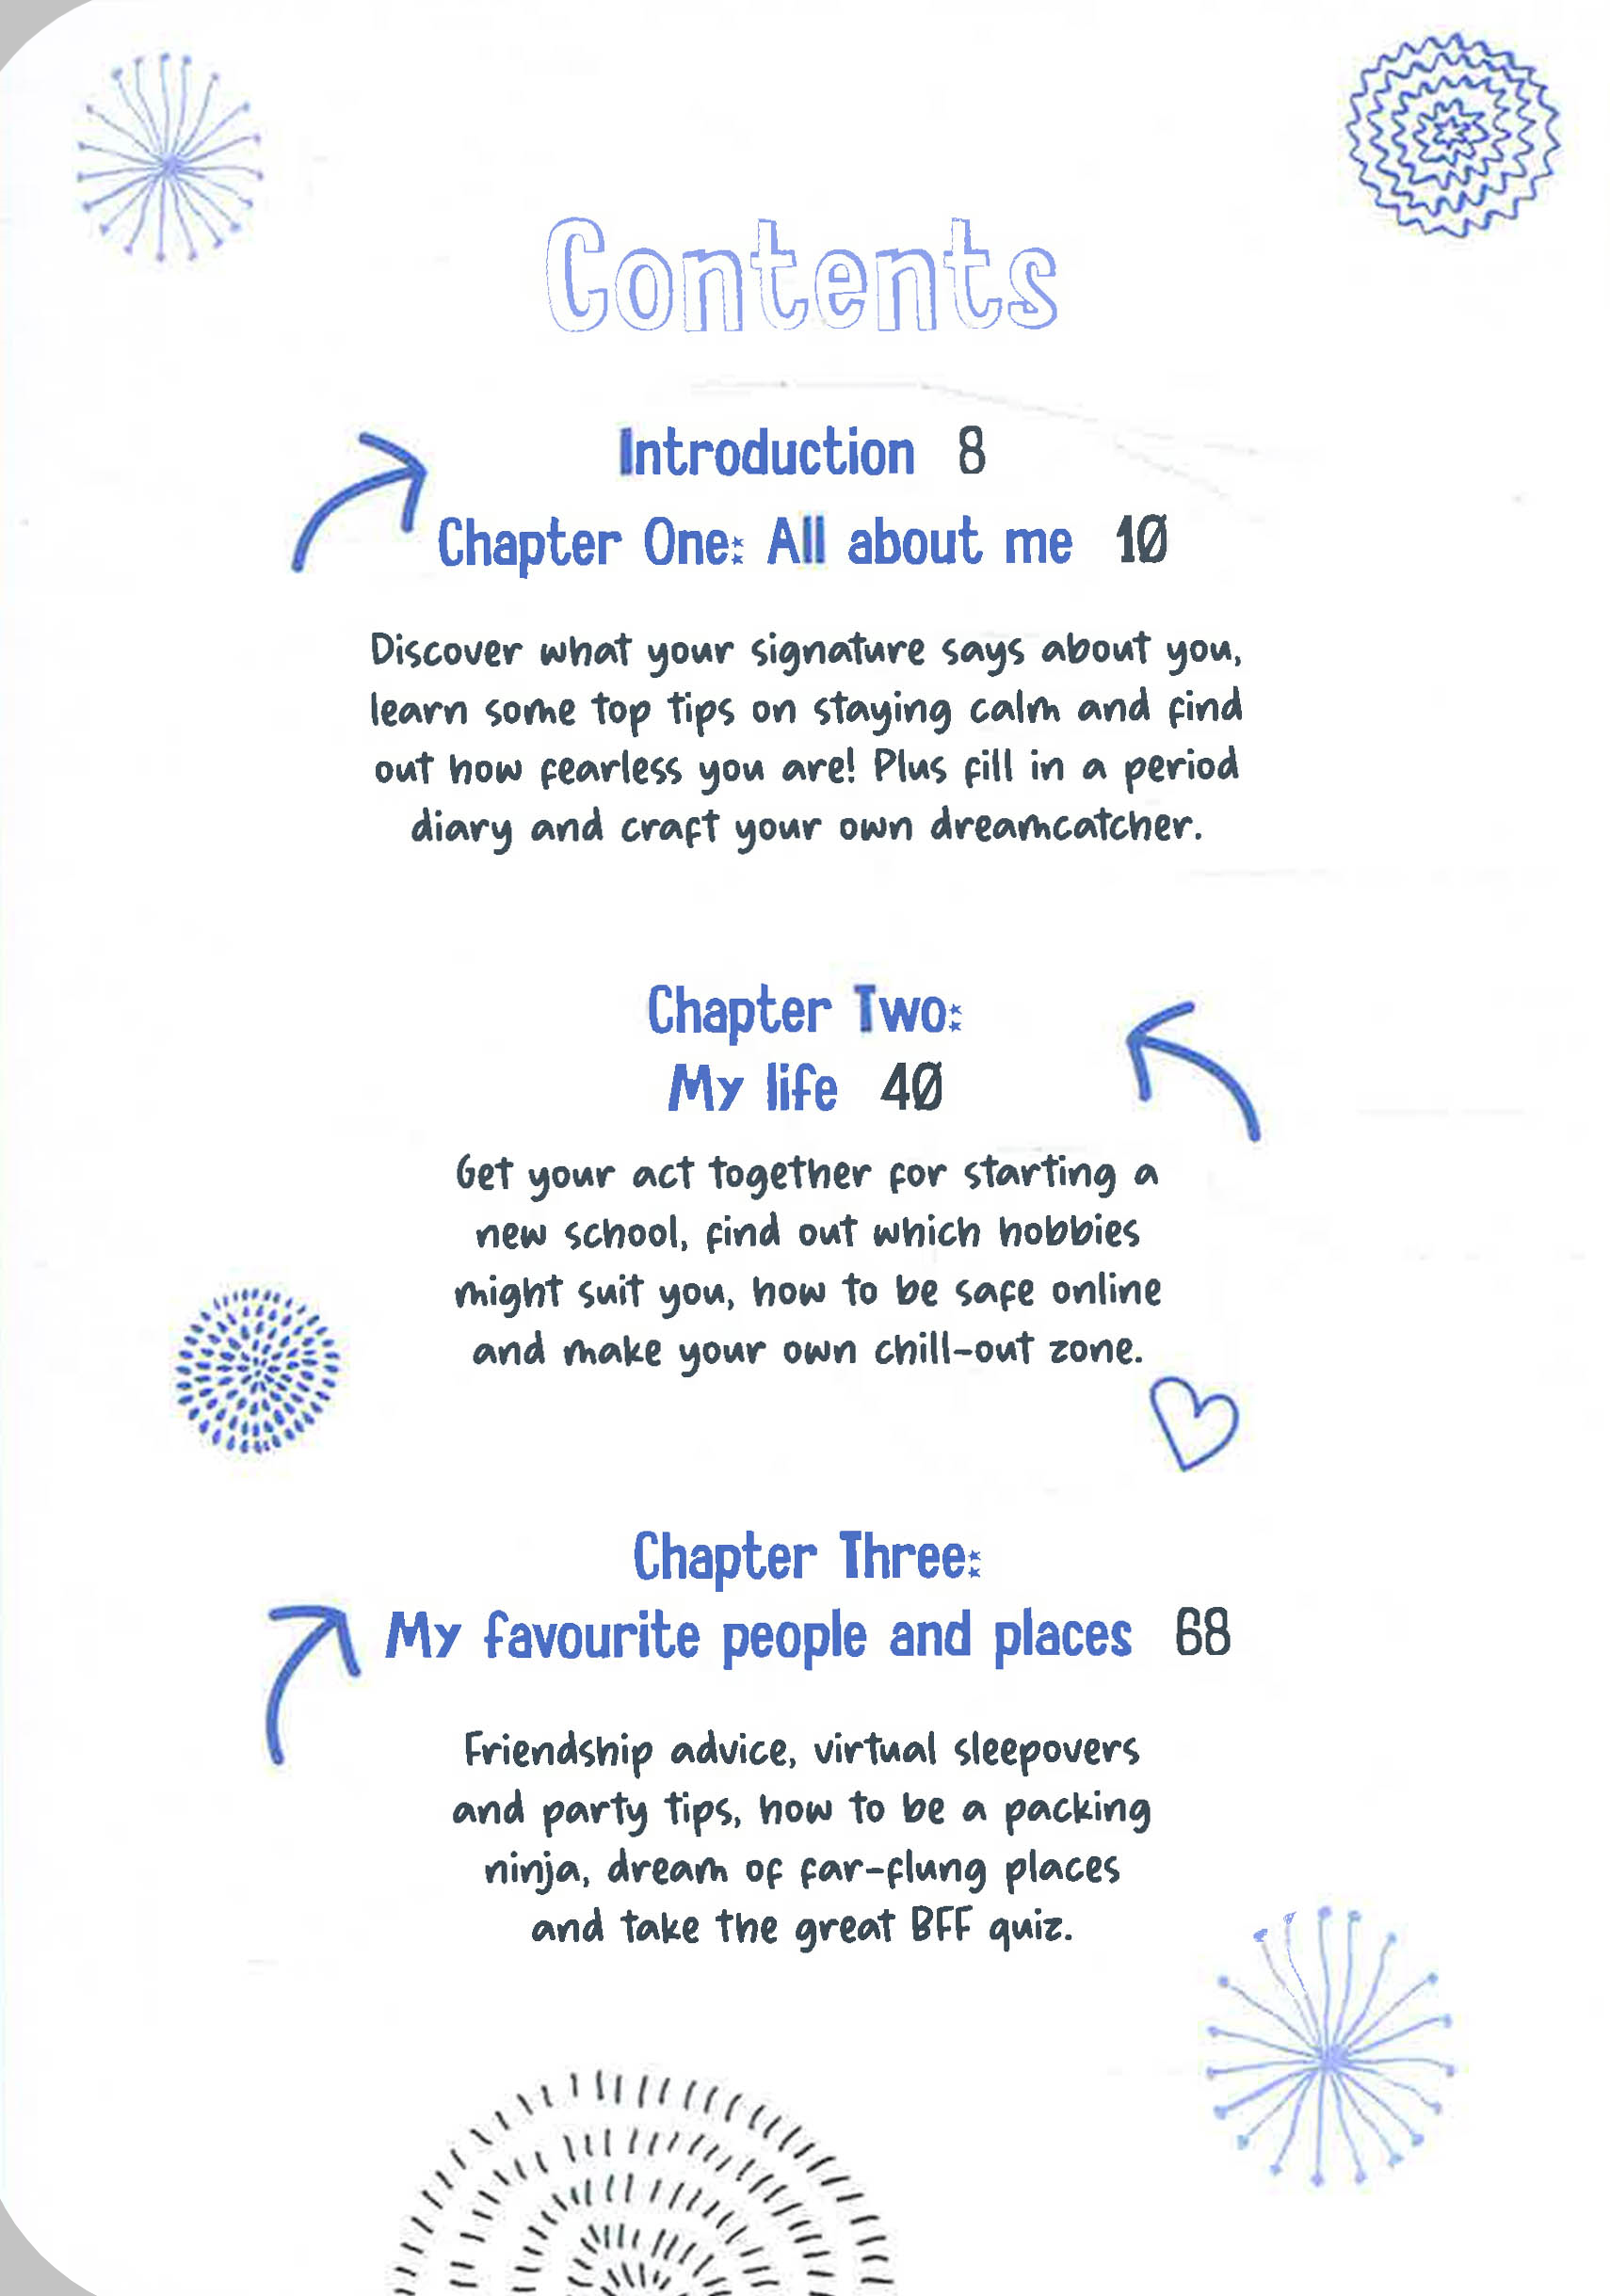 Contents
Introduction 8
Chapter One: All about me 10
Discover what your signature says about you,
learn some top tips on staying calm and find
out how fearless you are! Plus fill in a period
diary and craft your own dreamcatcher.
Chapter Two:
My life 40
Get your act together for starting a
new school, find out which hobbies
might suit you, how to be safe online
and make your own chill-out zone.
Chapter Three:
My favourite people and places 68
Friendship advice, virtual sleepovers
and party tips, how to be a packing
ninja, dream of far-flung places
and take the great BFF quiz.